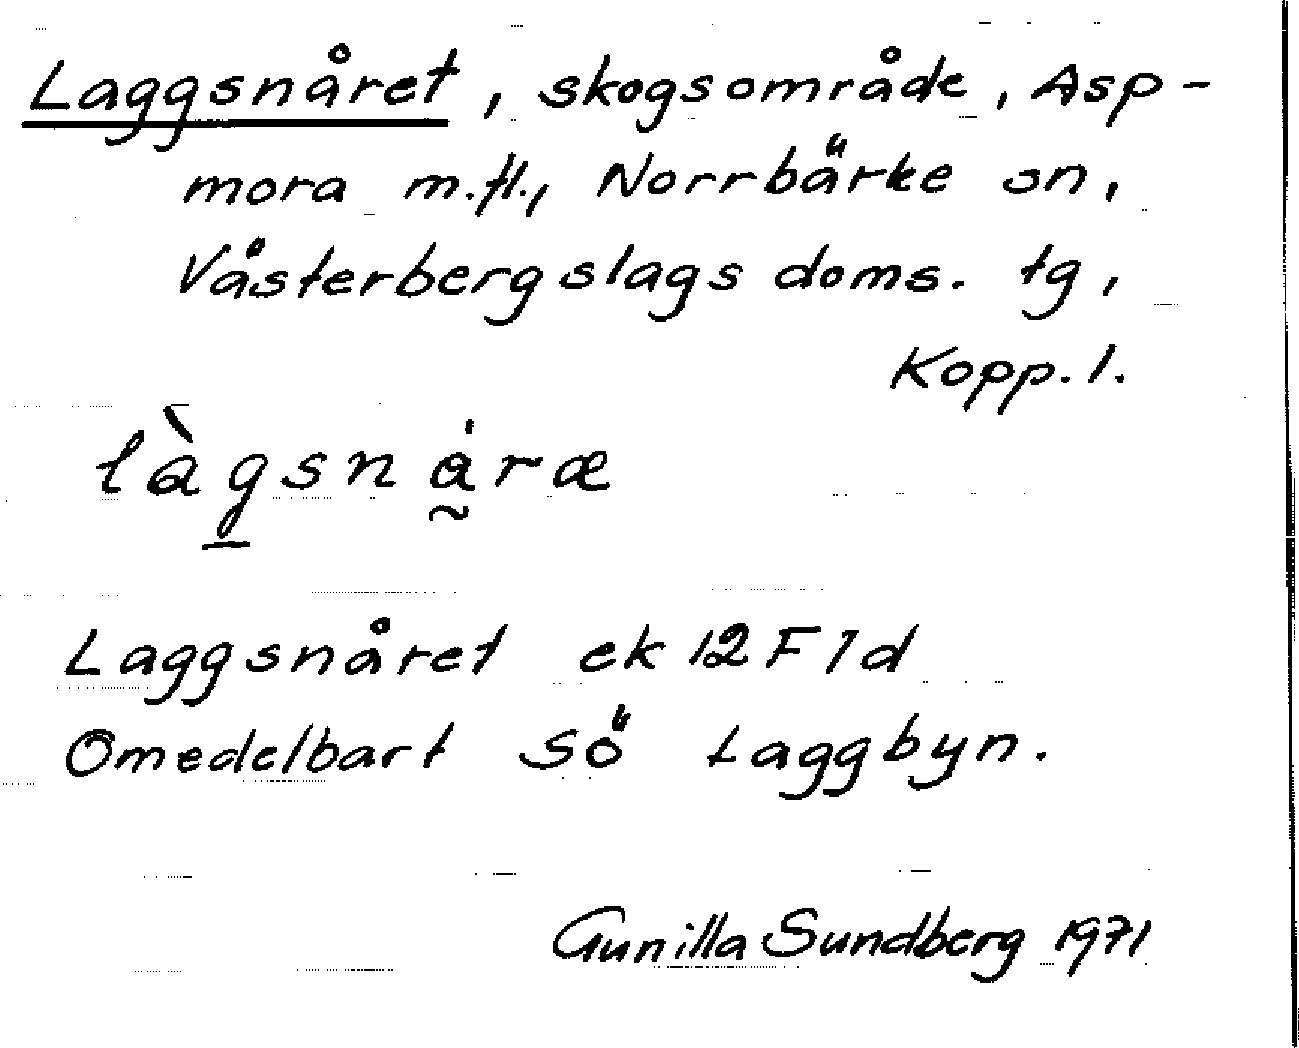 Laggsnåret, skogsområde, Asp-
mora m.fl., Norrbärke sn,
Västerbergslags doms. tg,
Kopp. l.
làg̱snå̰̍ræ
Laggsnåret ek 12F 7d
Omedelbart SÖ Laggbyn.
Gunilla Sundberg 1971